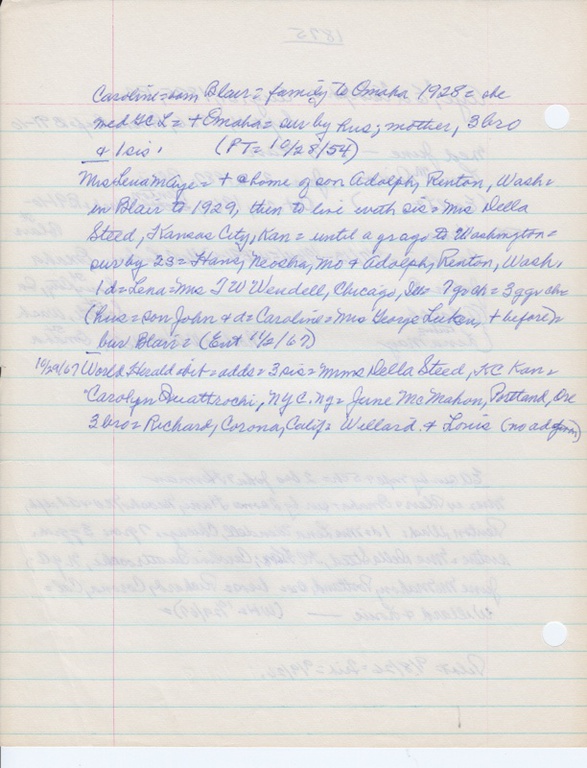 Caroline = born Blair = family to Omaha 1928 = she
med G C L = + Omaha = sur by hus; mother, 3 bro
& 1 sis. (PT = 10/28/54)
Mrs Lena Maye = + @ home of son Adolph, Renton, Wash =
in Blair to 1929, then to live with sis = Mrs Della
Steed, Kansas City, Kan = until a yr ago to Washington =
sur by 2S = Hans, Neosho, Mo & Adolph, Renton, Wash,
1 d = Lena = Mrs T W Wendell, Chicago, Ill = 7 grch = 3 ggrch =
(hus = son John & d = Caroline = Mrs George Luken, + before) =
bur Blair = (Ent 11/2/67)
10/29/67 World Herald obit = adds = 3 sis = Mmes Della Steed, KC Kan =
Carolyn Quattrochi, NYC, Ny = June McMahon, Portland, Ore
3 bro = Richard, Corona, Calif = Willard & Louis (no ad given)